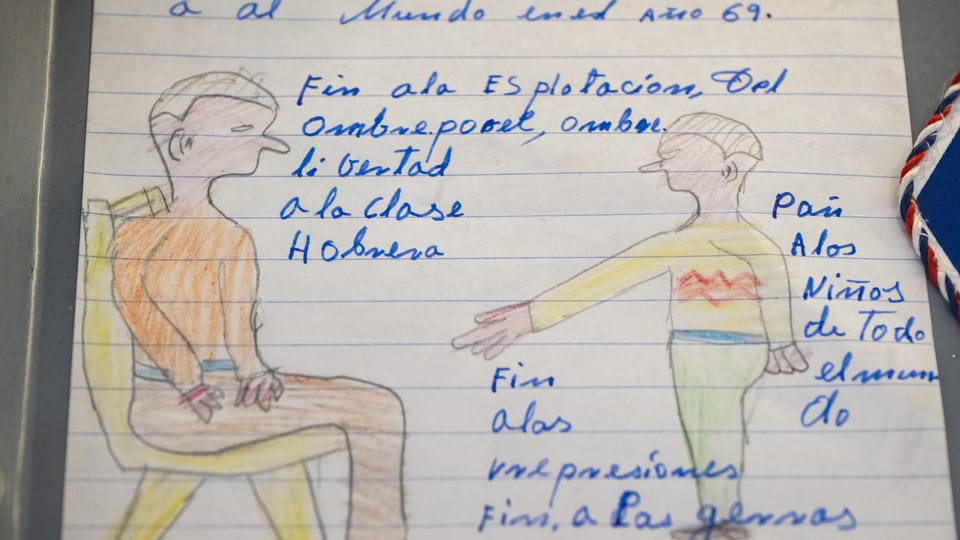 a al Mundo en el Año 69.
Fin ala ESplotación, Del
Ombre.porel, ombre.
libertad
a la clase
Hobrera
Pan
Alos
Niños
de Todo
el mun
do
Fin
alas
rrepresiones
Fin, a Las gerras